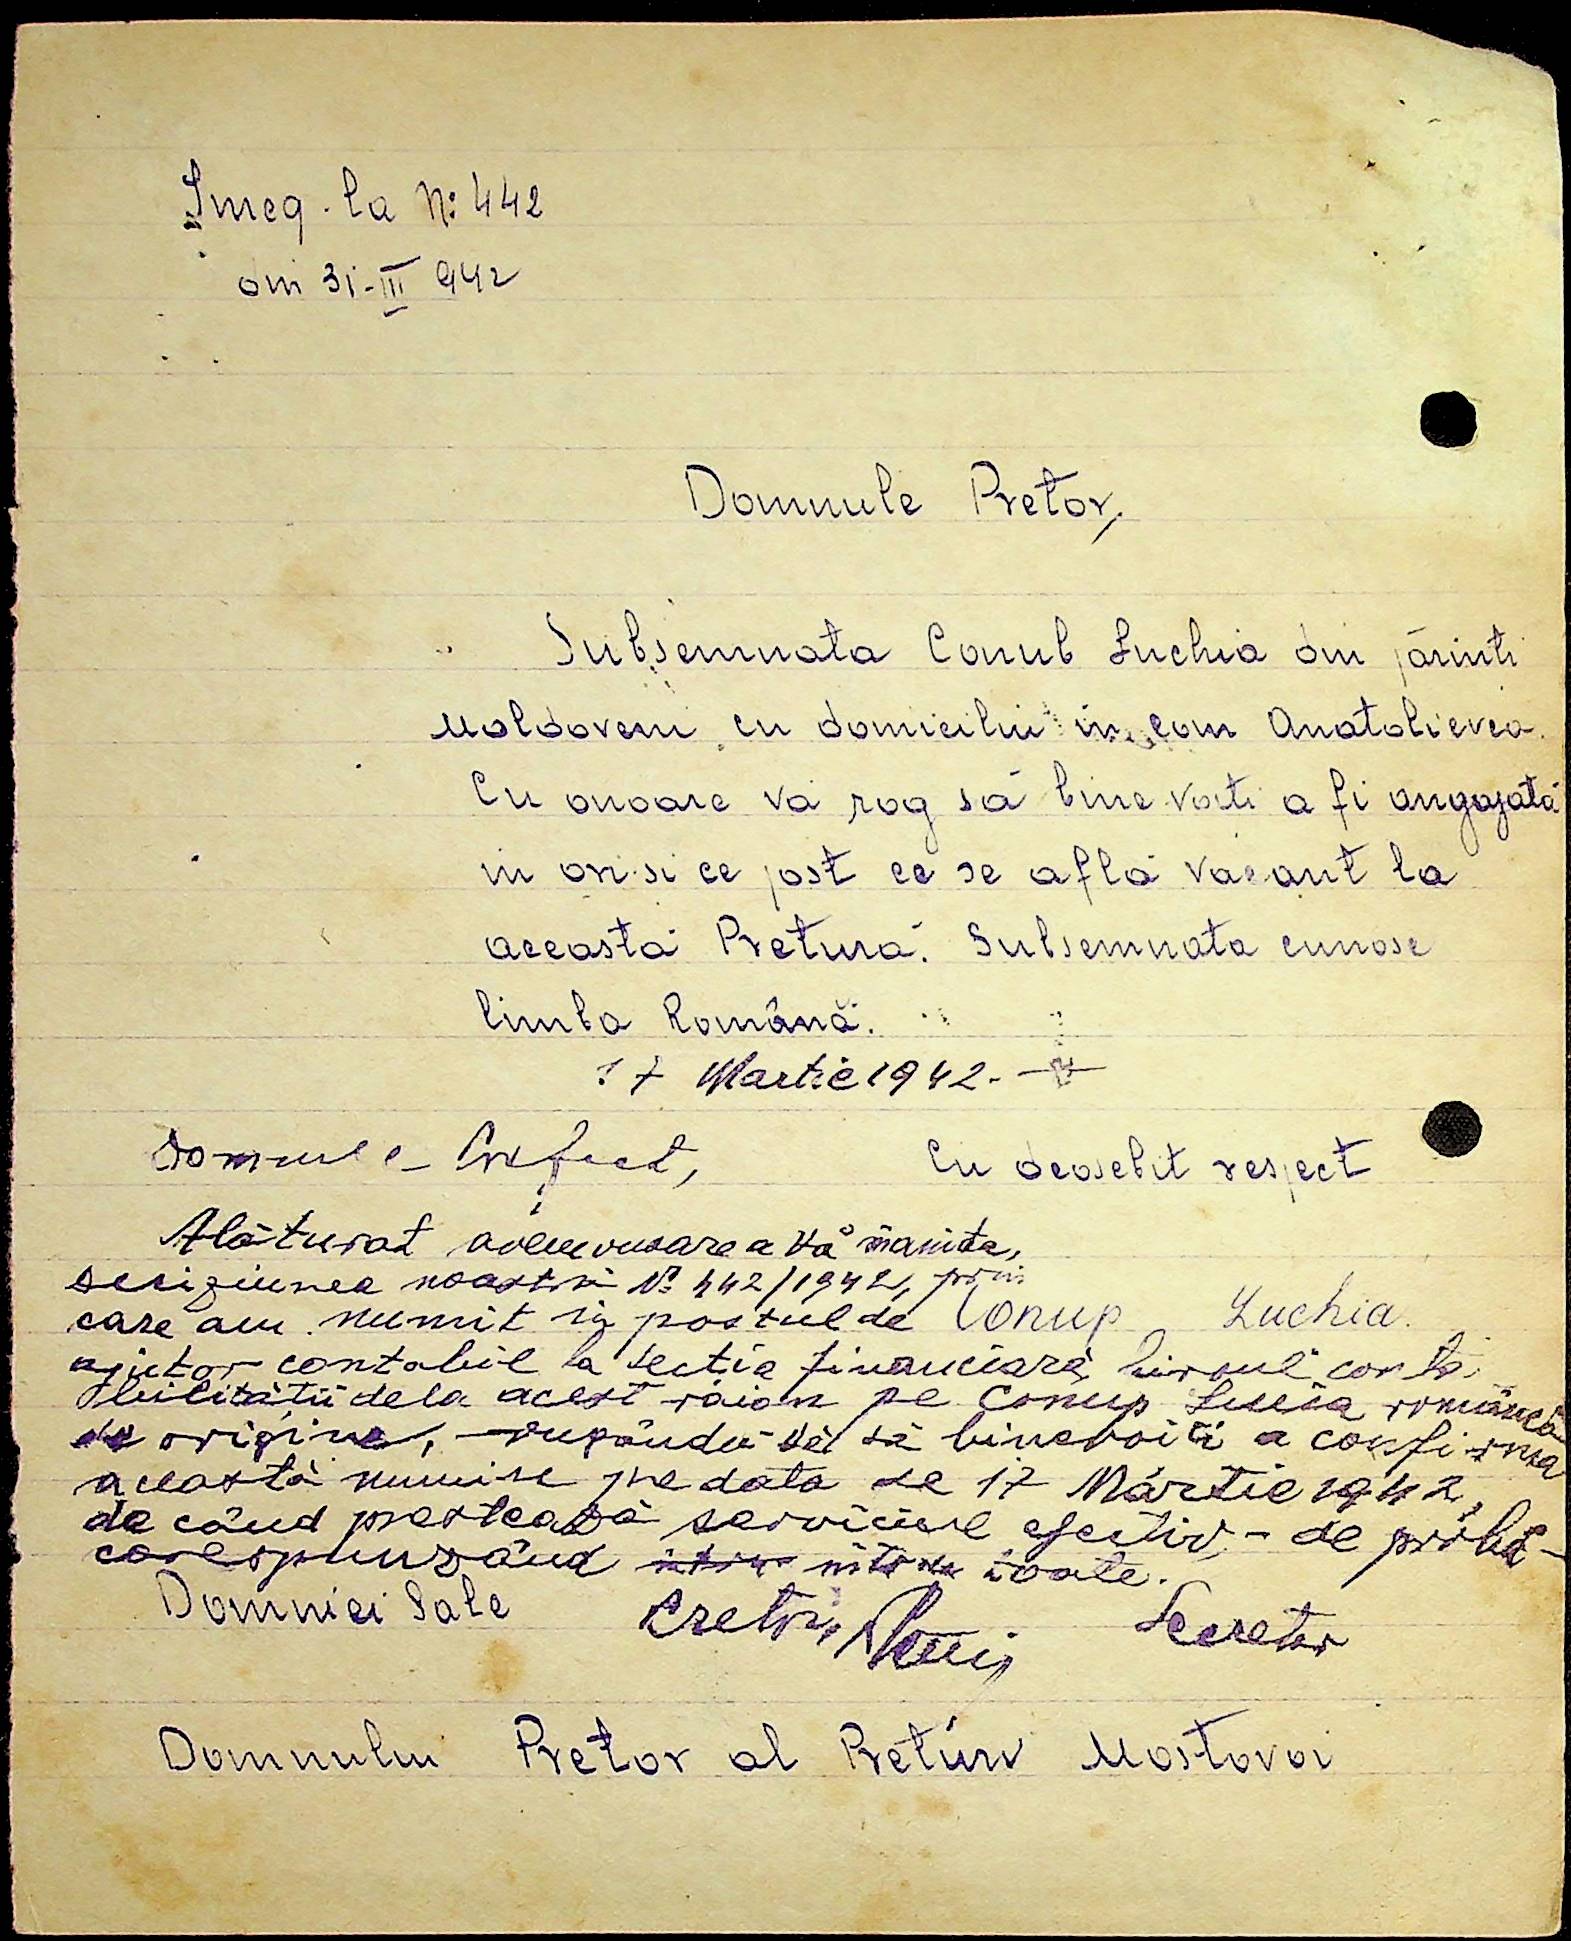 Inreg. la N: 442
din 31-III 942
Domnule Pretor,
Subsemnata Conub Luchia din părinti
Moldoveni cu domiciliu in com Anatolievca.
Cu onoare va rog să bine voiti a fi angajată
in ori si ce post ce se află vacant la
aceasta Pretură. Subsemnata cunosc
limba Română.
17 Martie 1942.
Domnule Prefect,
Cu deosebit respect
Alăturat avem onoarea Vă inainta,
deciziunea noastră No 442/1942, prin
care am numit in postul de
Conup Luchia.
ajutor contabil la sectia financiară, biroul conta-
bilitătii dela acest raion pe Conup Luchia româncă
de origine, rugându-Vă să binevoiti a confirma
această numire pe data de 17 Martie 1942,
de când prestează serviciul efectiv, - de probă -
corespunzând intru toate.
Domniei Sale
Pretor,
Secretar
Domnului Pretor al Preturi Mostovoi